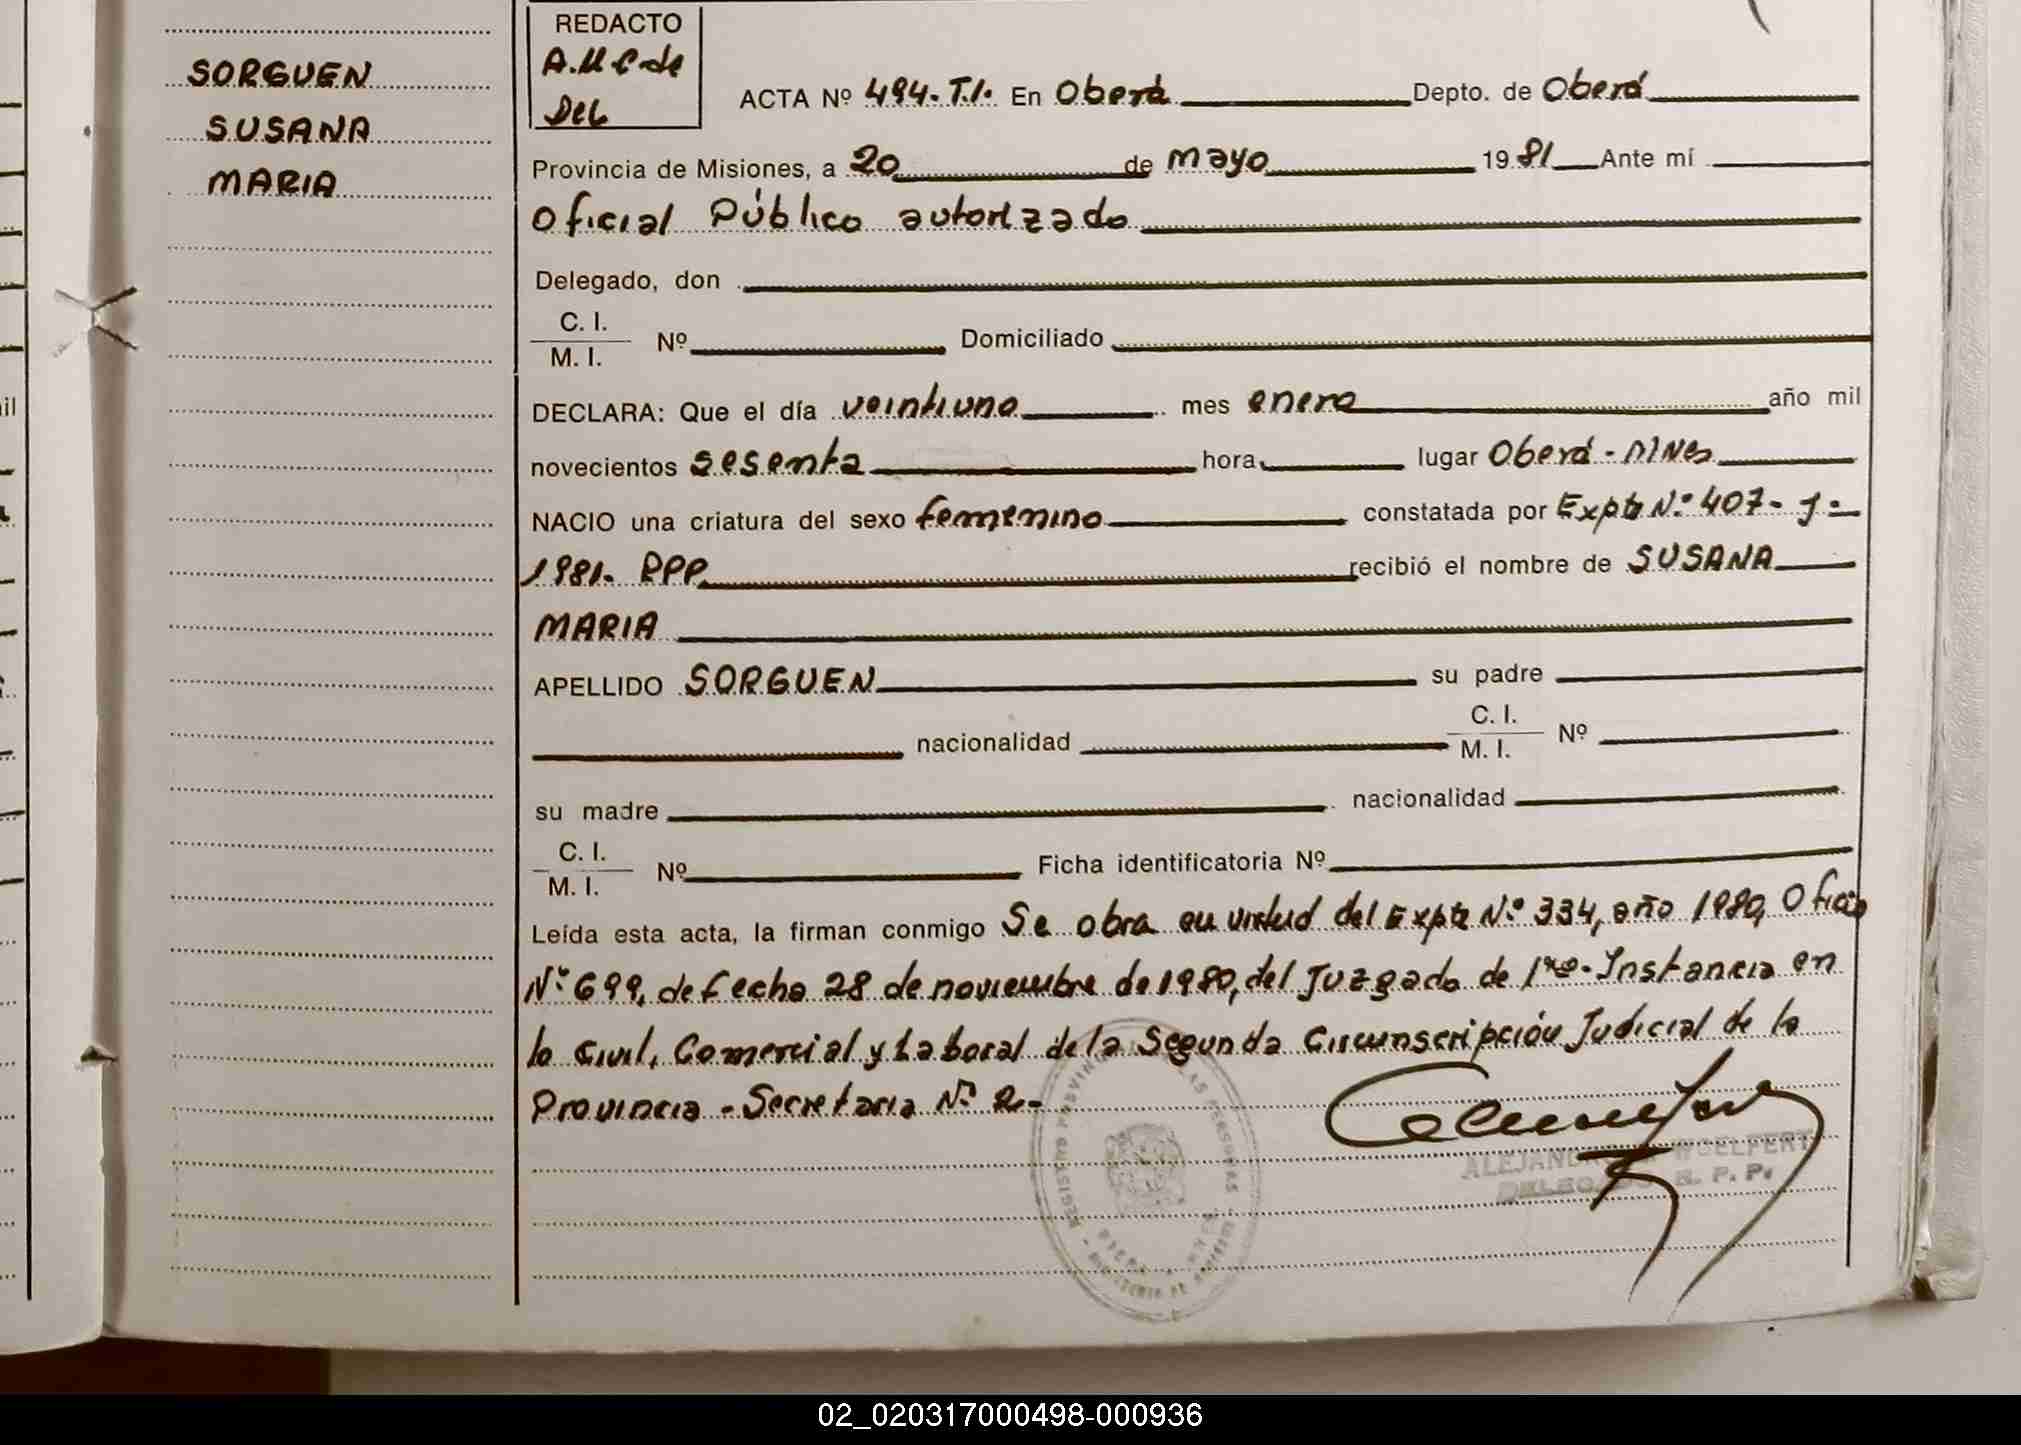 SORGUEN
SUSANA
MARIA
REDACTO
A.M.C de
DEL
ACTA Nº 494-T.I. En Oberá Depto. de Oberá
Provincia de Misiones, a 20 de mayo 1981 Ante mí
Oficial Público autorizado
Delegado, don
C. I.
M. I. Nº Domiciliado
DECLARA: Que el día veintiuno mes enero año mil
novecientos sesenta hora lugar Oberá - Mnes
NACIO una criatura del sexo femenino constatada por Expte Nº 407-J-
1981. RPP recibió el nombre de SUSANA
MARIA
APELLIDO SORGUEN su padre
nacionalidad C. I. M. I. Nº
su madre nacionalidad
C. I.
M. I. Nº Ficha identificatoria Nº
Leída esta acta, la firman conmigo Se obra en virtud del Expte Nº 334, año 1980, Oficio
Nº 699, de fecha 28 de noviembre de 1980, del Juzgado de 1ra. Instancia en
lo Civil, Comercial y Laboral de la Segunda Circunscripción Judicial de la
Provincia - Secretaria Nº 2-
WOELFERT
DELEGADO R. P. P.
02_020317000498-000936